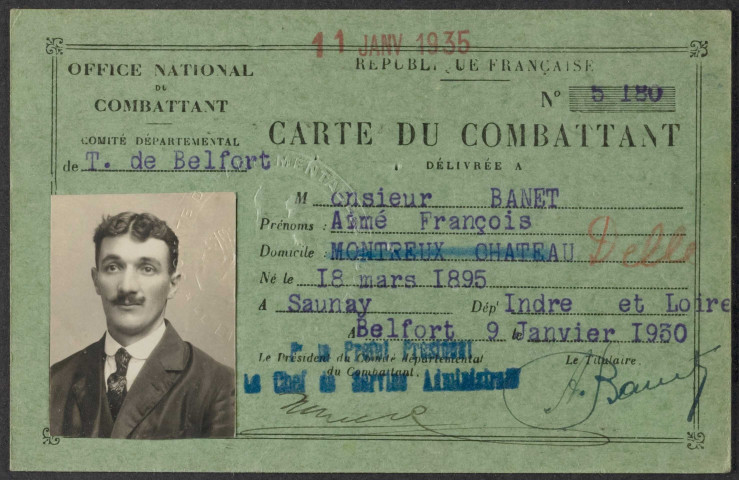 11 JANV 1935
OFFICE NATIONAL
DU
COMBATTANT
COMITÉ DÉPARTEMENTAL
de T. de Belfort
RÉPUBLIQUE FRANÇAISE
N° 5 180
CARTE DU COMBATTANT
DÉLIVRÉE A
Monsieur BANET
Prénoms : Aimé François
Domicile : MONTREUX CHATEAU Delle
Né le 18 mars 1895
A Saunay Dépt Indre et Loire
A Belfort 9 le Janvier 1930
Le Président du Comité départemental
du Combattant.
Le Titulaire.
P. le Préfet Président
Le Chef de Service Administratif
A. Banet